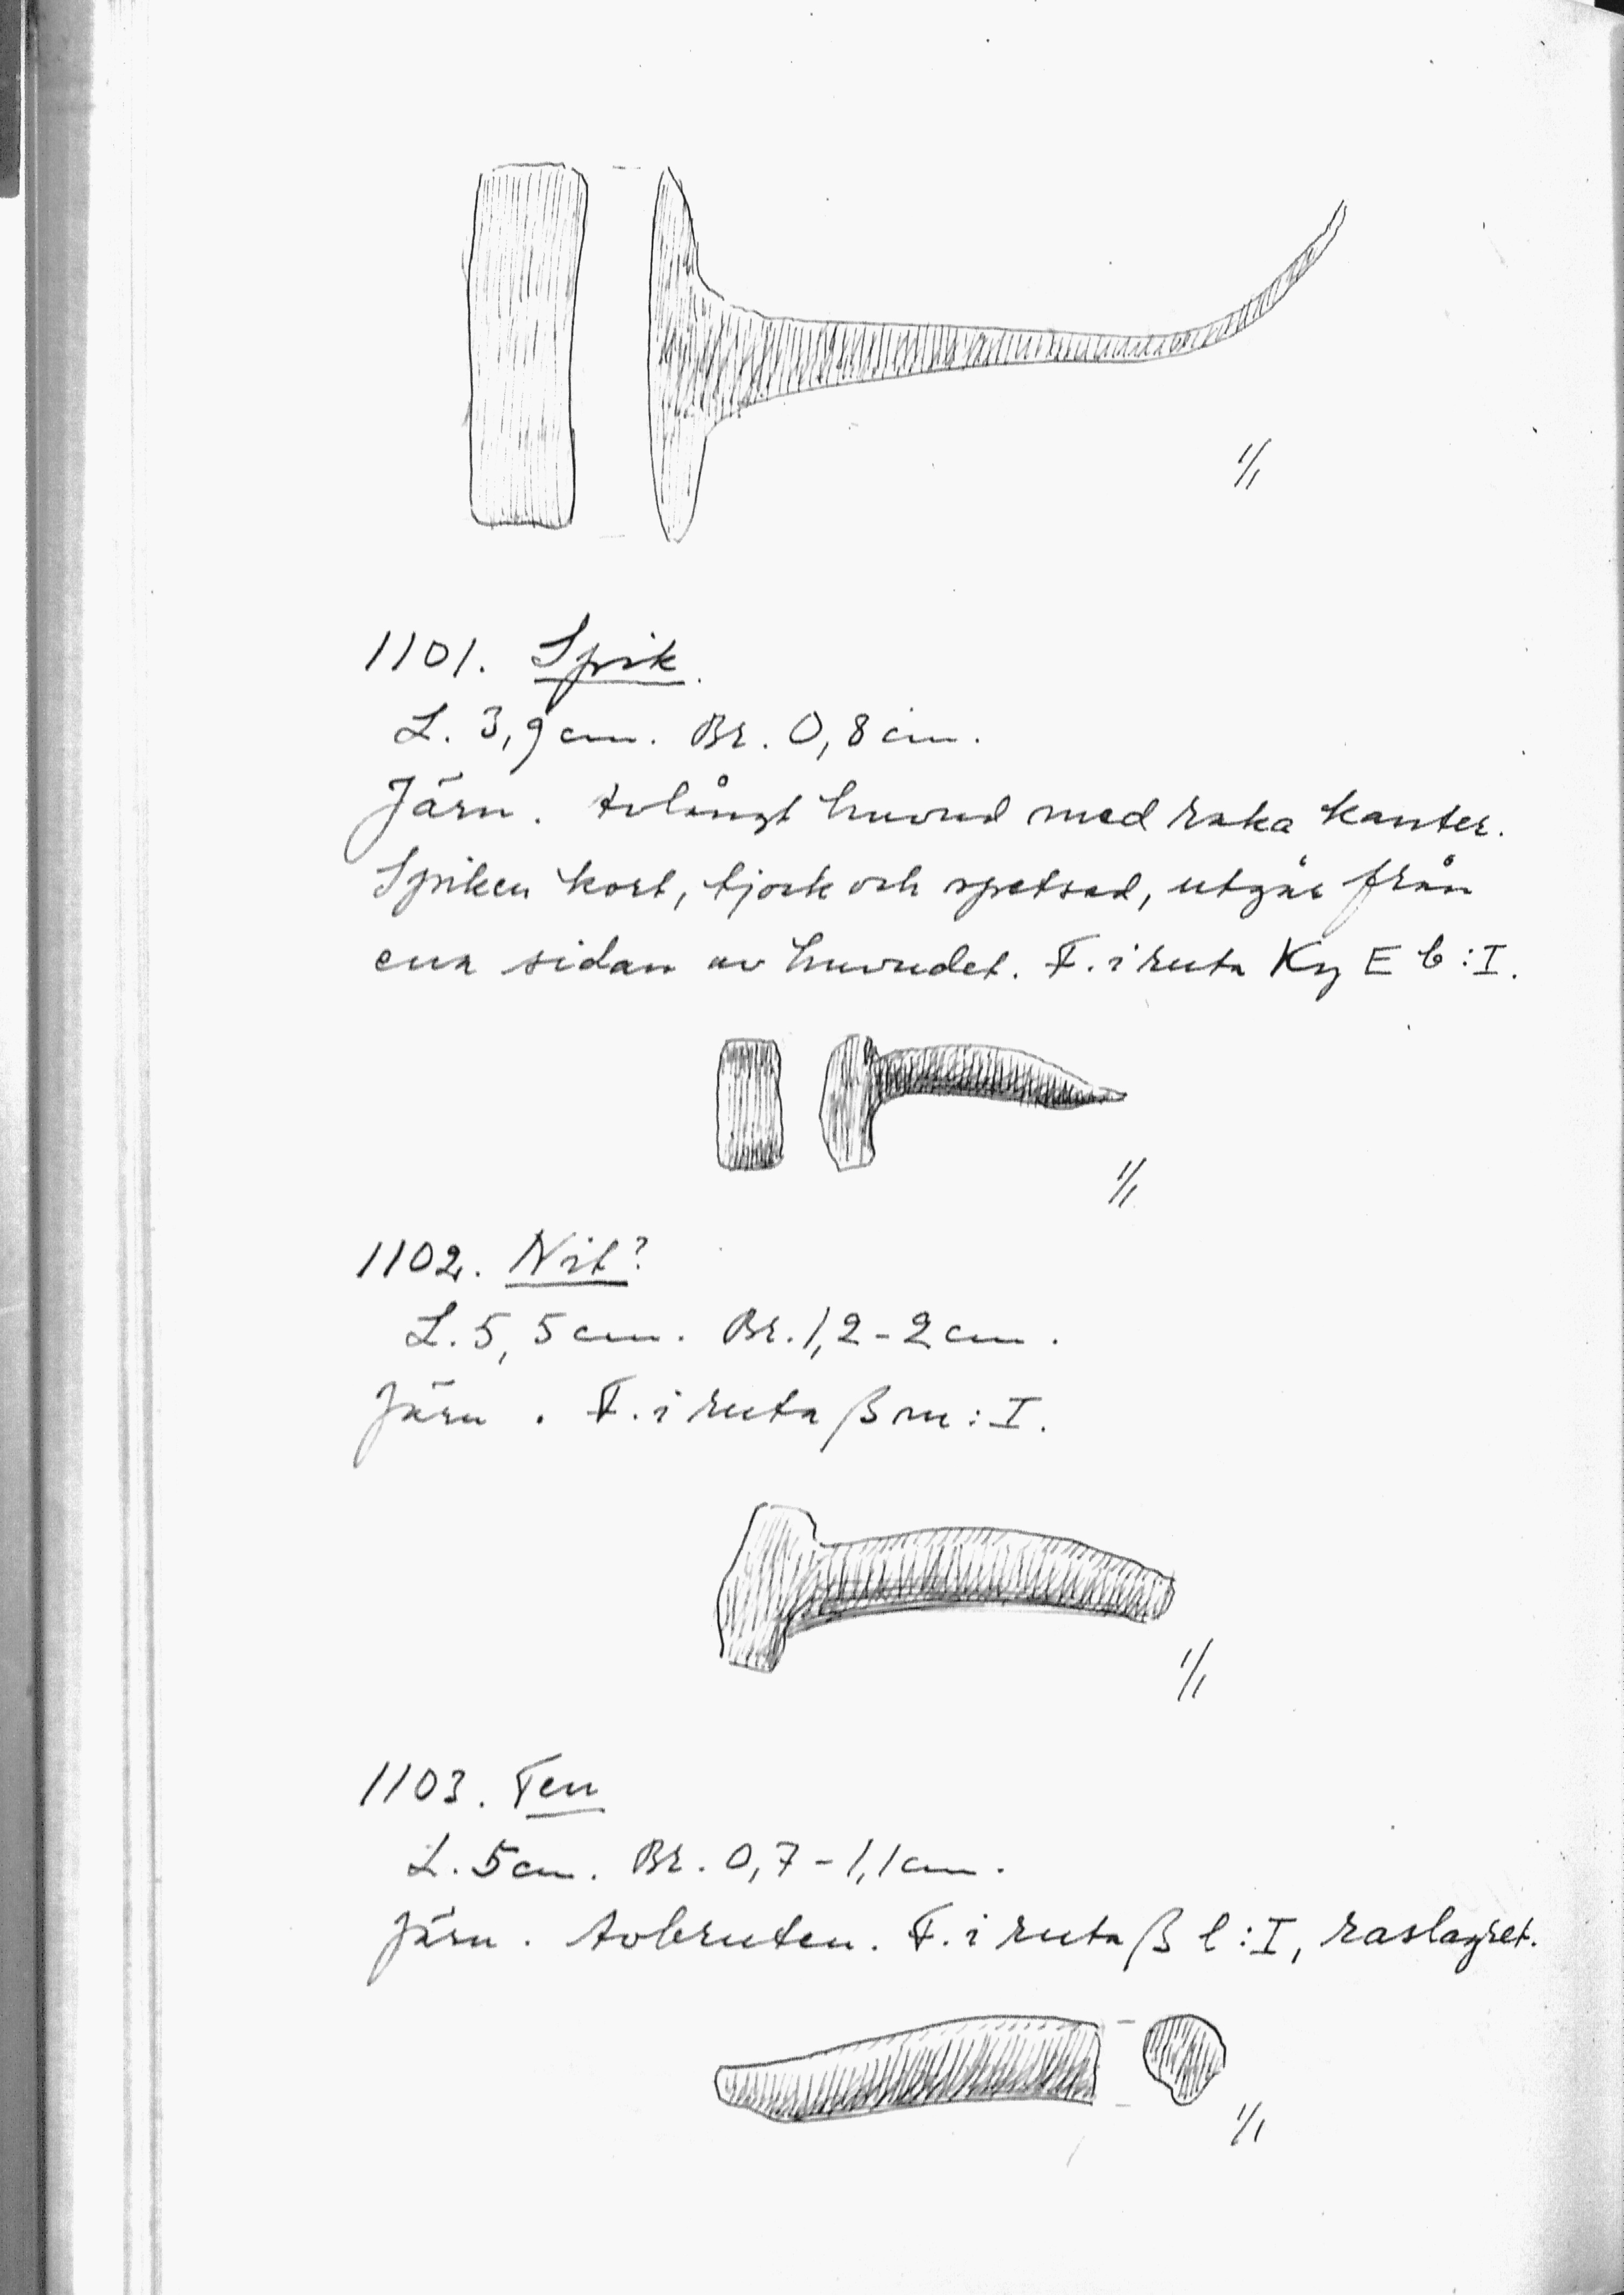 1/1
1101. Spik.
L. 3,9 cm. Br. 0,8 cm.
Järn. Avlångt huvud med raka kanter.
Spiken kort, tjock och spetsad, utgår från
ena sidan av huvudet. F. i ruta Ky E b:I.
1/1
1102. Nit?
L. 5,5 cm. Br. 1,2-2 cm.
Järn. F. i ruta ß m:I.
1/1
1103. Ten
L. 5 cm. Br. 0,7-1,1 cm.
Järn. Avbruten. F. i ruta ß l:I, raslagret.
1/1